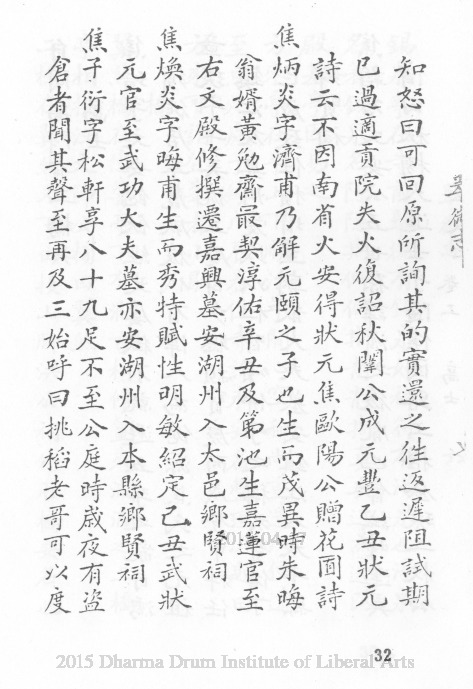 知怒曰可回原所詢其的實還之徃返遲阻試期
已過適貢院失火復詔秋闈公成元豐乙丑狀元
詩云不因南省火安得狀元焦歐陽公贈花圖詩
焦炳炎字濟甫乃解元頤之子也生而茂異時朱晦
翁婿黃勉齋最契淳佑辛丑及第池生嘉蓮官至
右文殿修撰還嘉興墓安湖州入太邑鄉賢祠
焦煥炎字晦甫生而秀特賦性明敏紹定乙丑武狀
元官至武功大夫墓亦安湖州入本縣鄉賢祠
焦子衍字松軒享八十九足不至公庭時歲夜有盜
倉者聞其聲至再及三始呼曰挑稻老哥可以度
32
2015 Dharma Drum Institute of Liberal Arts